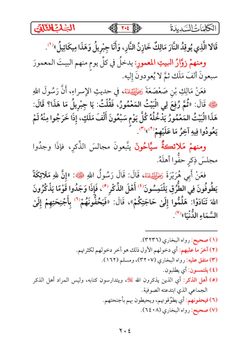 الكلمات السديدة
٢٠٤
قَالَا الَّذِي يُوقِدُ النَّارَ مَالِكٌ خَازِنُ النَّارِ، وَأَنَا جِبْرِيلُ وَهَذَا مِيكَائِيلُ»(١).
ومنهمْ زوَّارُ البيتِ المعمورِ: يدخلُ في كلِّ يومٍ منهم البيتَ المعمورَ
سبعونَ ألفَ ملَكٍ ثمَّ لا يَعودونَ إليه.
فعنْ مَالِكِ بْنِ صَعْصَعَةَ ، في حديثِ الإسراءِ، أنَّ رَسولَ اللهِ
قالَ: «ثُمَّ رُفِعَ لِي الْبَيْتُ الْمَعْمُورُ، فَقُلْتُ: يَا جِبْرِيلُ مَا هَذَا؟ قَالَ:
هَذَا الْبَيْتُ الْمَعْمُورُ يَدْخُلُهُ كُلَّ يَوْمٍ سَبْعُونَ أَلْفَ مَلَكٍ، إِذَا خَرَجُوا مِنْهُ لَمْ
يَعُودُوا فِيهِ آخِرُ مَا عَلَيْهِمْ»(٢)(٣).
ومنهم مَلائكةٌ سيَّاحُونَ يتَّبعونَ مجالسَ الذِّكرِ، فإذَا وجدُوا
مجلسَ ذِكرٍ حفُّوا أهلَهُ.
فعنْ أَبِي هُرَيْرَةَ ، قَالَ: قَالَ رَسُولُ اللهِ : «إِنَّ لِلَّهِ مَلَائِكَةً
يَطُوفُونَ فِي الطُّرُقِ يَلْتَمِسُونَ(٤) أَهْلَ الذِّكْرِ(٥)، فَإِذَا وَجَدُوا قَوْمًا يَذْكُرُونَ
اللهَ تَنَادَوْا: هَلُمُّوا إِلَى حَاجَتِكُمْ»، قَالَ: «فَيَحُفُّونَهُمْ(٦) بِأَجْنِحَتِهِمْ إِلَى
السَّمَاءِ الدُّنْيَا»(٧).
(١) صحيح: رواه البخاري (٣٢٣٦).
(٢) آخر ما عليهم: أي دخولهم الأول ذلك هو آخر دخولهم لكثرتهم.
(٣) متفق عليه: رواه البخاري (٣٢٠٧)، ومسلم (١٦٢).
(٤) يلتمسون: أي يطلبون.
(٥) أهل الذكر: أي الذين يذكرون الله، ويتدارسون كتابه، وليس المراد أهل الذكر
الجماعي الذي ابتدعته الصوفية.
(٦) فيحفونهم: أي يطوّفونهم، ويحيطون بهم بأجنحتهم.
(٧) صحيح: رواه البخاري (٦٤٠٨).
٢٠٤